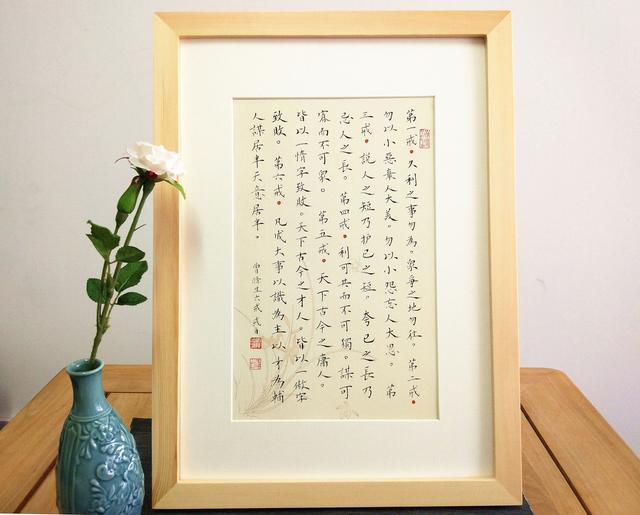 第一戒•久利之事勿為。衆爭之地勿往。第二戒•
勿以小惡棄人大美。勿以小怨忘人大恩。第
三戒•說人之短乃护己之短。夸己之長乃
忌人之長。第四戒•利可共而不可獨。謀可
寡而不可衆。第五戒•天下古今之庸人。
皆以一惰字致敗。天下古今之才人。皆以一傲字
致敗。第六戒•凡成大事以識為主以才為輔
人謀居半天意居半。
曾滌生六戒